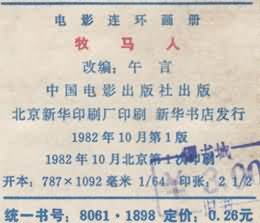 电影连环画册
牧马人
改编：午言
中国电影出版社出版
北京新华印刷厂印刷 新华书店发行
1982年10月第1版
1982年10月北京第1次印刷
开本：787×1092毫米 1/64 印张：2 1/2
统一书号：8061·1898 定价：0.26元